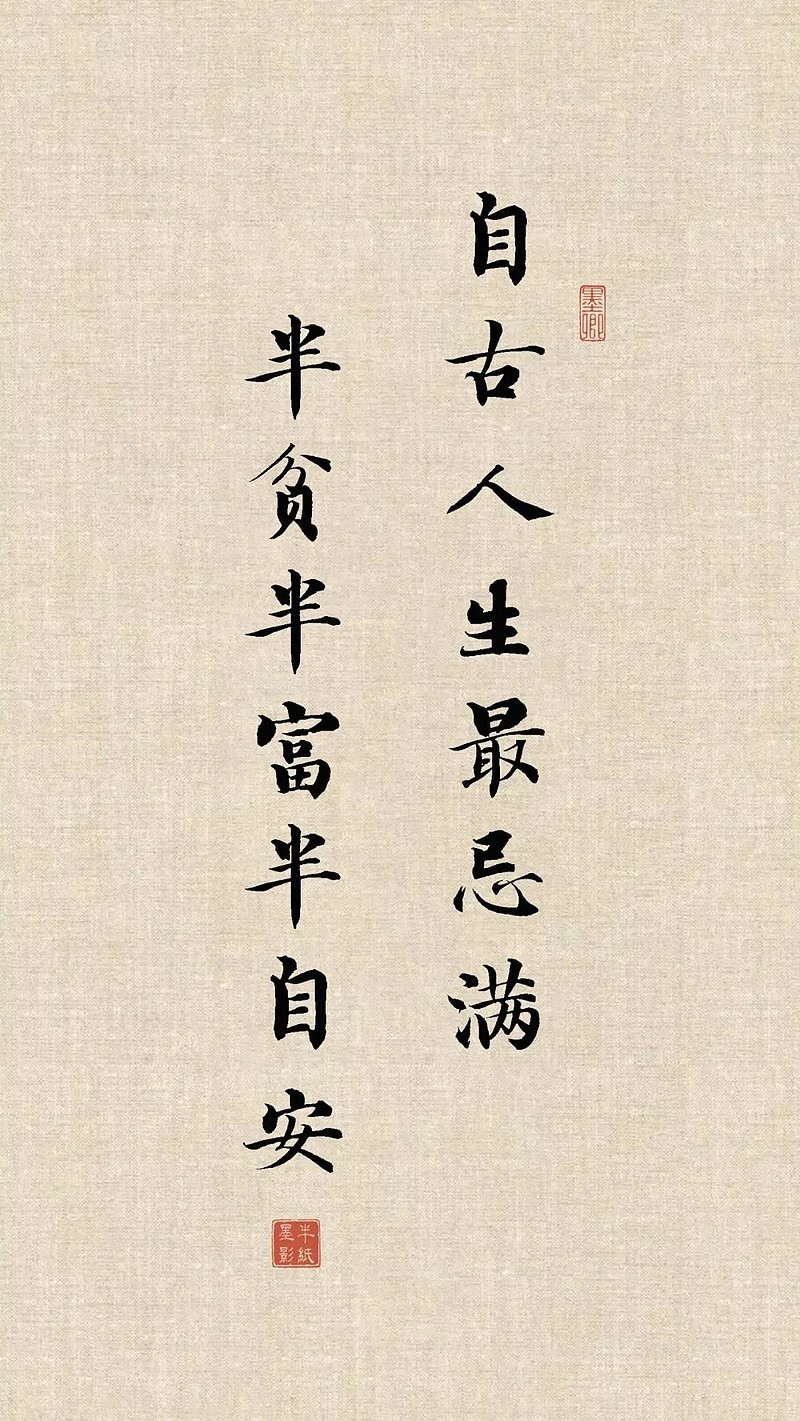 自古人生最忌满
半贫半富半自安
墨卿
半纸
墨影